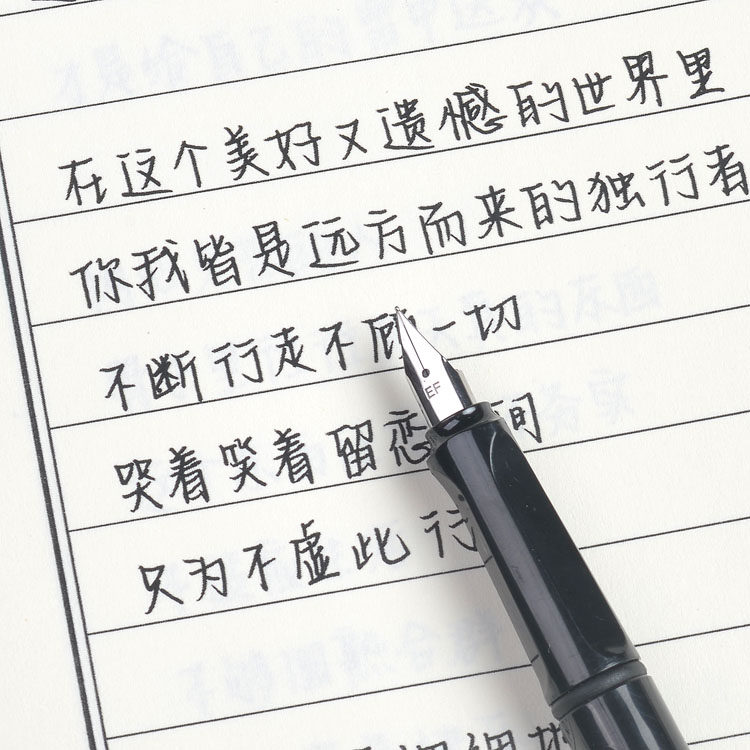 在这个美好又遗憾的世界里
你我皆是远方而来的独行者
不断行走不顾一切
哭着笑着留恋 间
只为不虚此行
EF